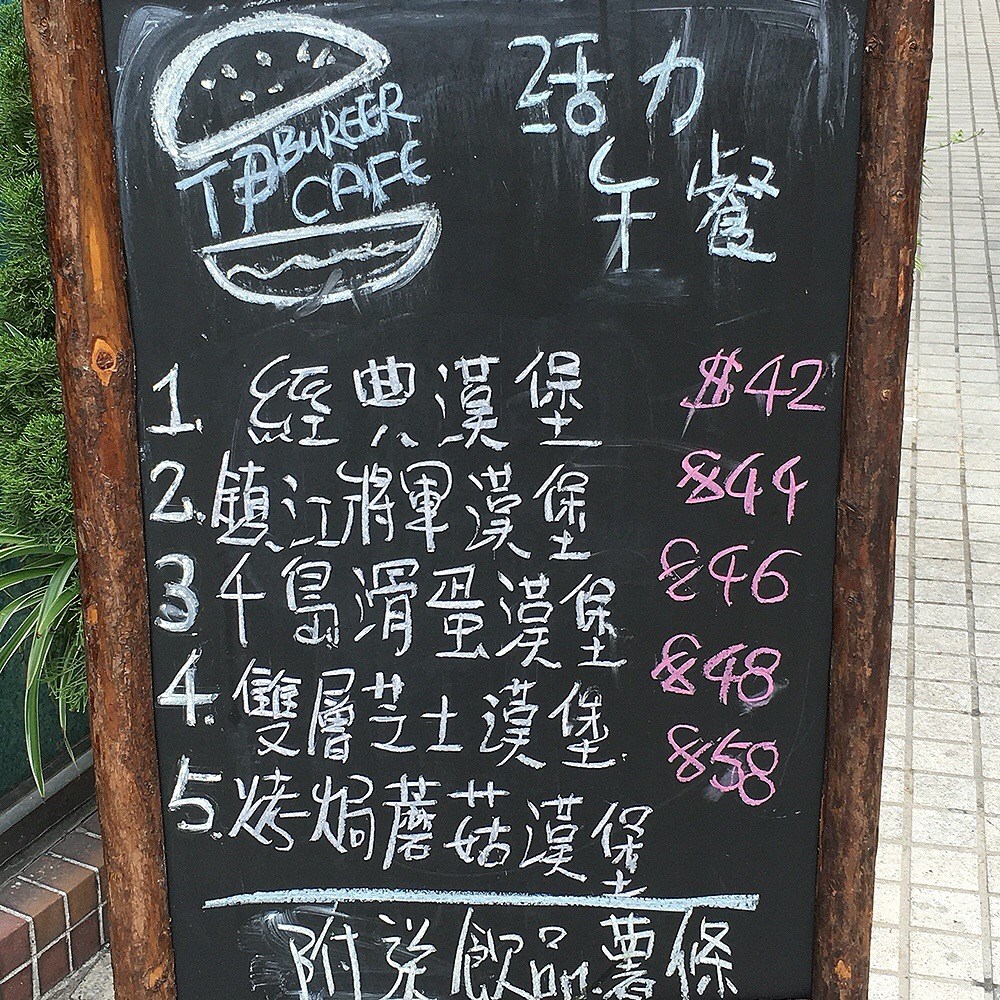 BURGER
TP CAFE
活力
午餐
1. 經典漢堡 $42
2. 鎮江將軍漢堡 $44
3 千島滑蛋漢堡 $46
4. 雙層芝士漢堡 $48
5. 烤焗蘑菇漢堡 $58
附送飲品薯條